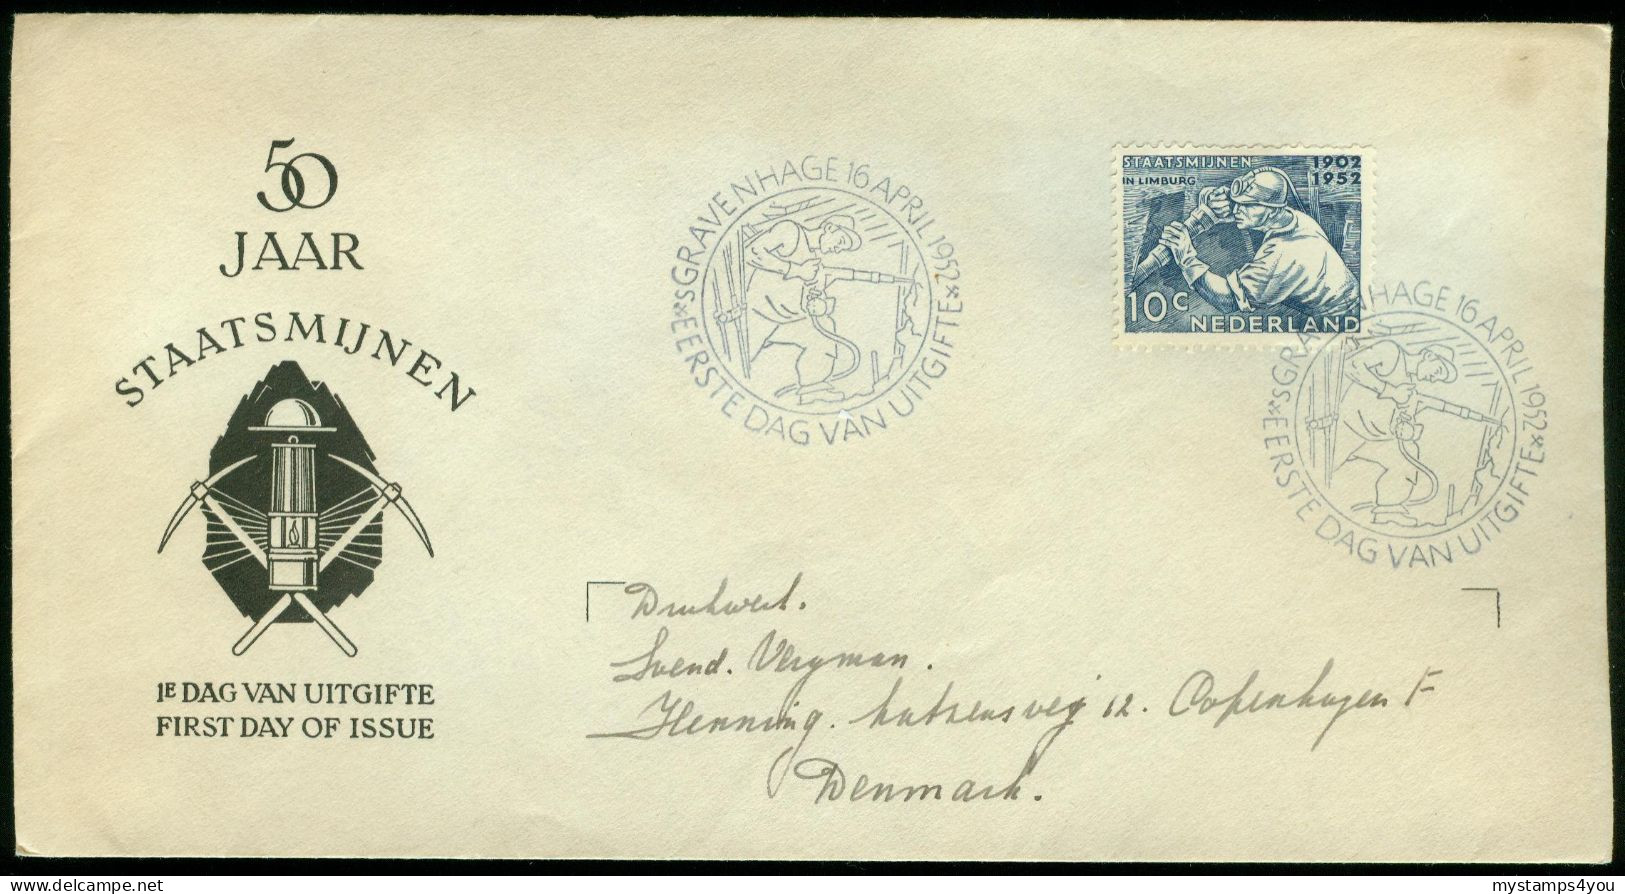 50
JAAR
STAATSMIJNEN
1E DAG VAN UITGIFTE
FIRST DAY OF ISSUE
SGRAVENHAGE 16 APRIL 1952
EERSTE DAG VAN UITGIFTE
STAATSMIJNEN 1902
IN LIMBURG 1952
10c
NEDERLAND
SGRAVENHAGE 16 APRIL 1952
EERSTE DAG VAN UITGIFTE
Drukwerk.
Svend. Vergman.
Henning. 12. Copenhagen F
Denmark.
mystamps4you